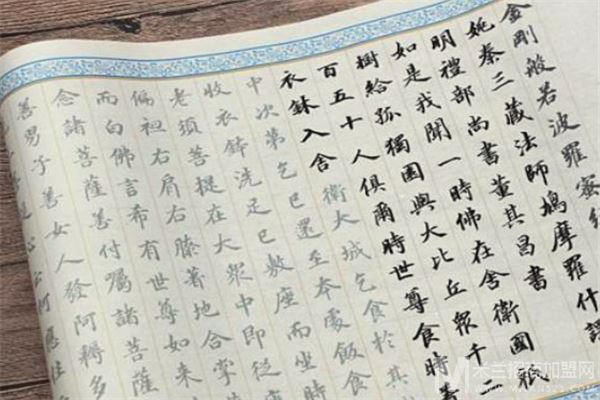 金剛般若波羅蜜經
姚秦三藏法師鳩摩羅什譯
明禮部尚書董其昌書
如是我聞一時佛在舍衛國祇
樹給孤獨園與大比丘眾千二
百五十人俱爾時世尊食時著
衣鉢入舍衛大城乞食於其
中次第乞已還至本處飯食
收衣鉢洗足已敷座而坐時
老須菩提在大眾中即從座
偏袒右肩右膝著地合掌
而白佛言希有世尊如來
念諸菩薩善付囑諸菩薩
善男子善女人發阿耨多
应住
木兰招商加盟网